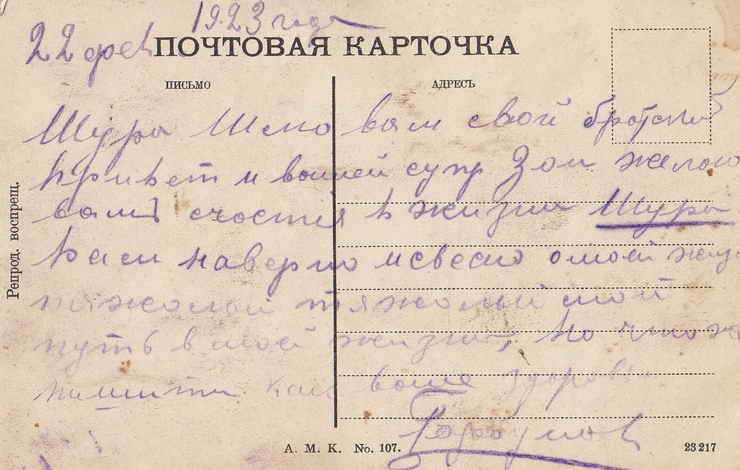 1923 года
22 фев
ПОЧТОВАЯ КАРТОЧКА
ПИСЬМО
АДРЕСЪ
Шура Шлю вам свой братский
привет и вашей супр Зои желаю
вам счастия в жизни Шура
Вам наверно исвесно о моей жизн
тяжолый мой
путь в моей жизни, но что ж
пишити как ваше здоров
Репрод. воспрещ.
А. М. К. No. 107.
23217